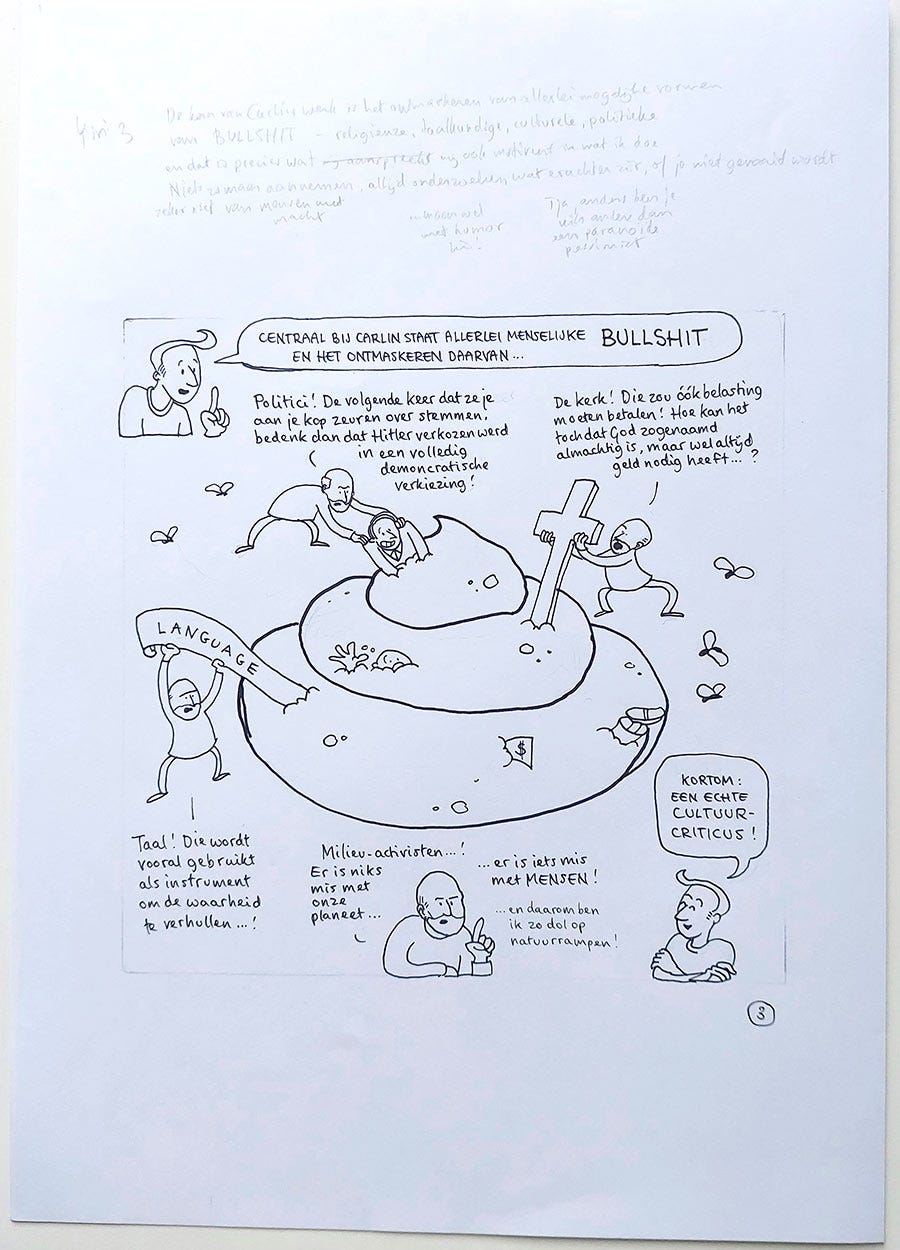 4 in 3
De kern van Carlins werk is het ontmaskeren van allerlei mogelijke vormen
van BULLSHIT - religieuze, taalkundige, culturele, politieke
en dat is precies wat mij ook motiveert in wat ik doe
Niets zomaar aannemen, altijd onderzoeken wat erachter zit, of je niet genaaid wordt
zeker niet van mensen met
macht
...maar wel
met humor
hè!
Tja, anders ben je
niks anders dan
een paranoïde
pessimist
CENTRAAL BIJ CARLIN STAAT ALLERLEI MENSELIJKE BULLSHIT
EN HET ONTMASKEREN DAARVAN...
Politici! De volgende keer dat ze je
aan je kop zeuren over stemmen,
bedenk dan dat Hitler verkozen werd
in een volledig
demoncratische
verkiezing!
De kerk! Die zou óók belasting
moeten betalen! Hoe kan het
toch dat God zogenaamd
almachtig is, maar wel altijd
geld nodig heeft...?
LANGUAGE
$
Taal! Die wordt
vooral gebruikt
als instrument
om de waarheid
te verhullen...!
Milieu-activisten...!
Er is niks
mis met
onze
planeet...
...er is iets mis
met MENSEN!
...en daarom ben
ik zo dol op
natuurrampen!
KORTOM:
EEN ECHTE
CULTUUR-
CRITICUS!
3